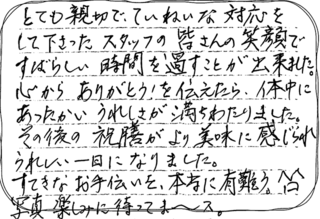 とても親切で、ていねいな対応を
して下さったスタッフの皆さんの笑顔で
すばらしい時間を過すことが出来ました。
心からありがとう!を伝えたら、体中に
あったかいうれしさが満ちわたりました。
その後の祝膳がより美味に感じられ
うれしい一日になりました。
すてきなお手伝いを、本当に有難う。
写真楽しみに待ってま〜ス。